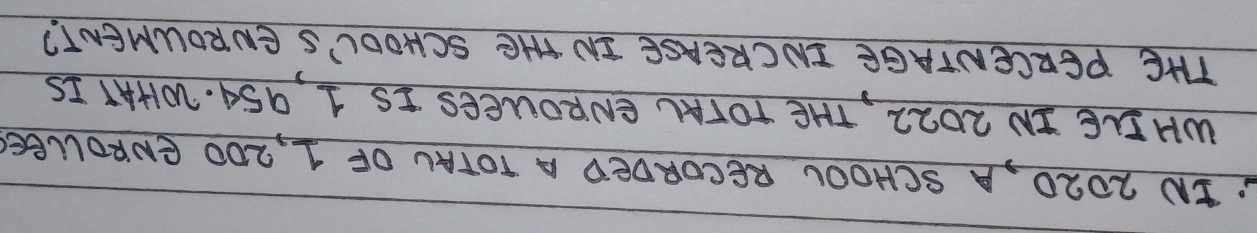 . IN 2020, A SCHOOL RECORDED A TOTAL OF 1,200 ENROLLEES
WHILE IN 2022, THE TOTAL ENROLLEES IS 1,954. WHAT IS
THE PERCENTAGE INCREASE IN THE SCHOOL'S ENROLLMENT?